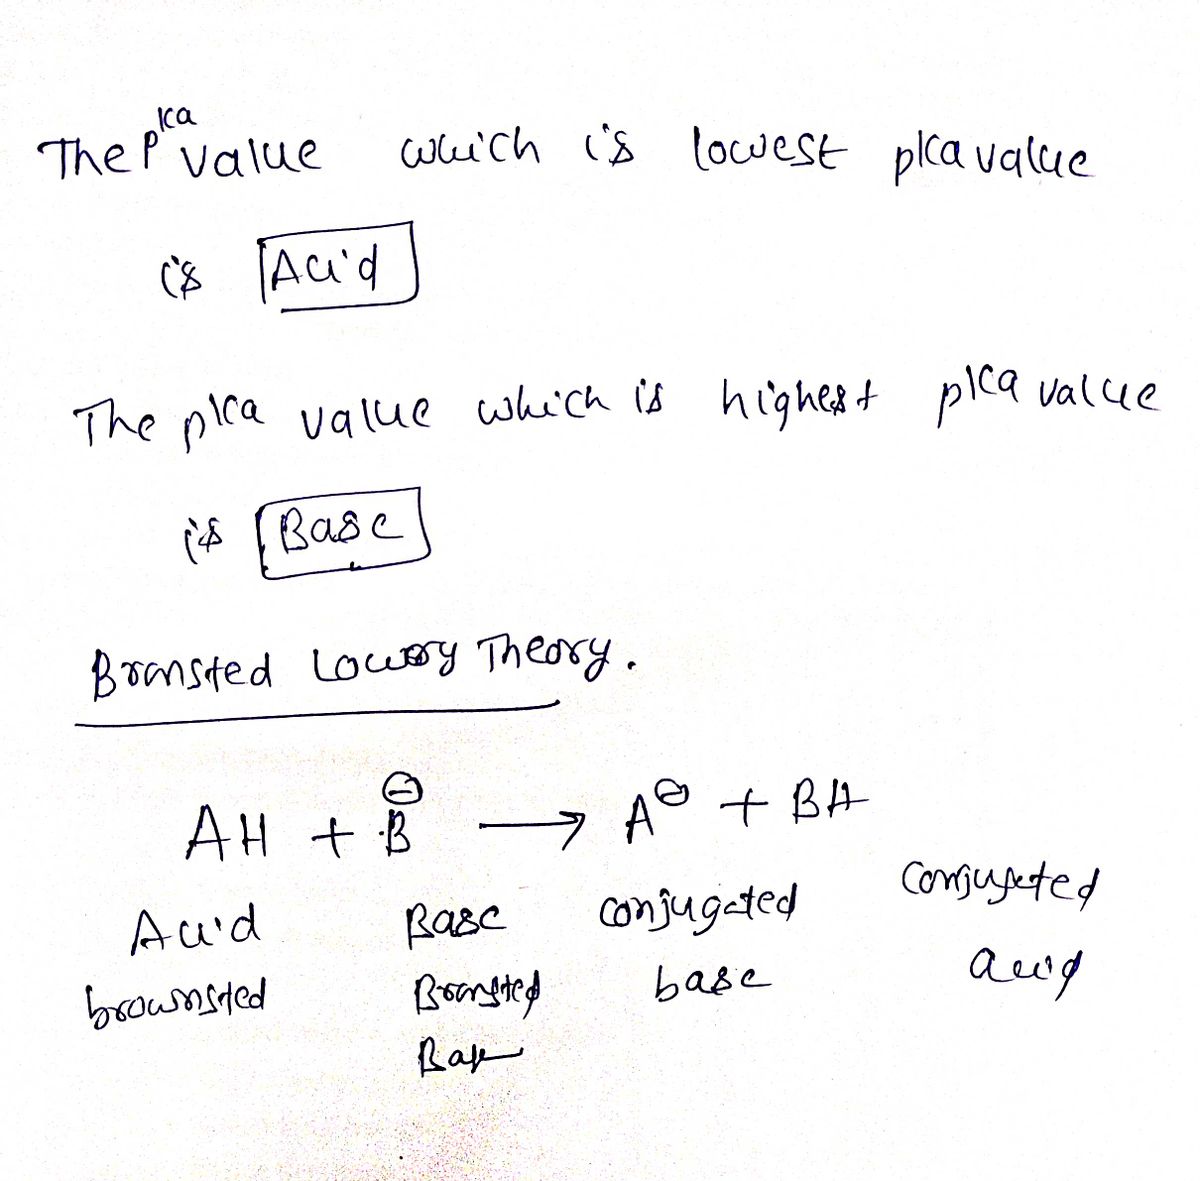 The pka value which is lowest pka value
is Acid
The pka value which is highest pka value
is Base
Bronsted Lowery Theory.
AH + B⊖ → A⊖ + BH
Acid Base conjugated conjugated
brownsted Bronsted base acid
Base